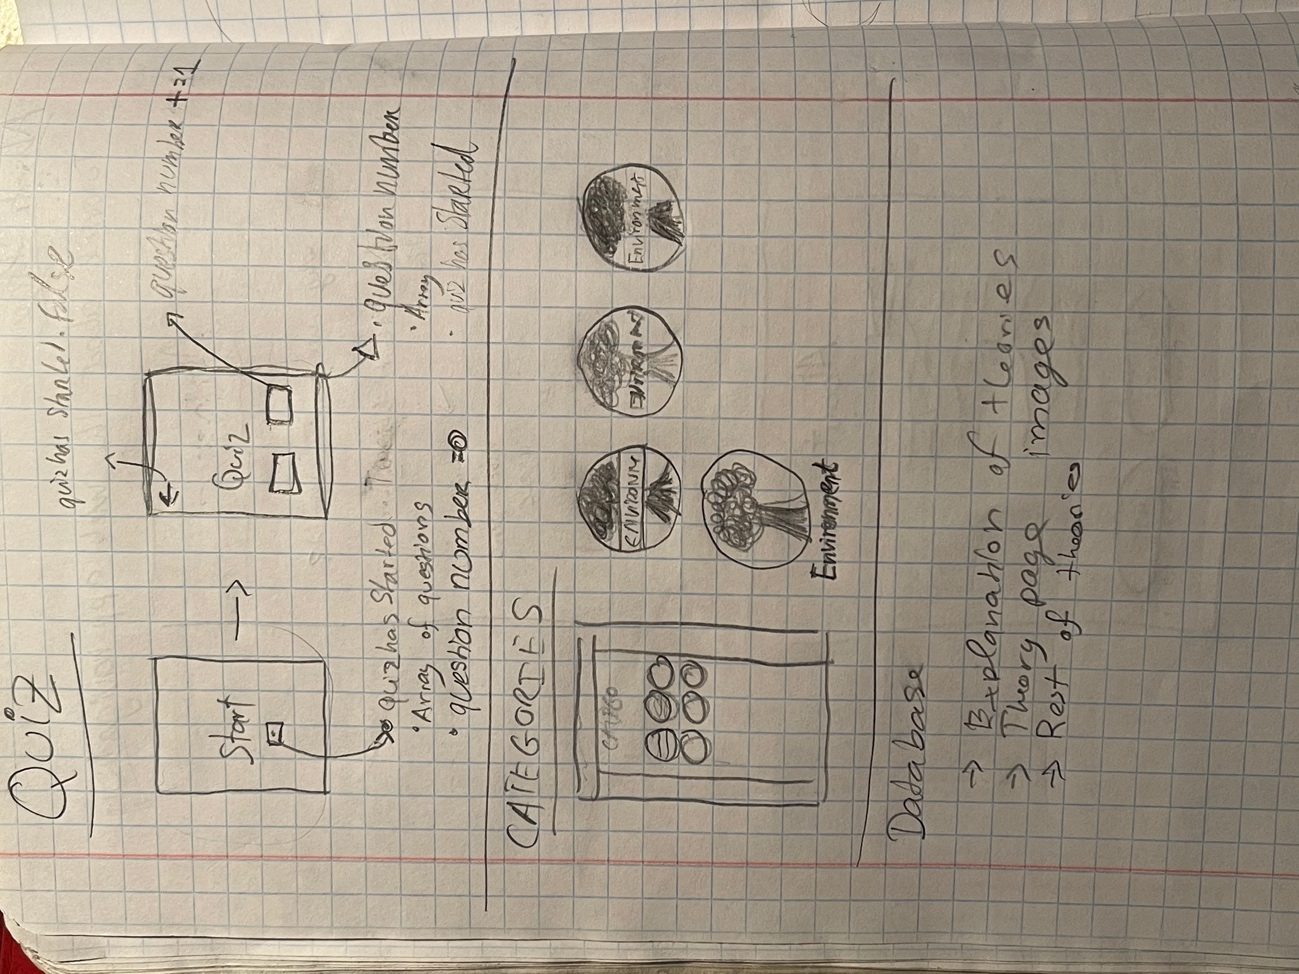 QUIZ
quiz has Started. False
question number +=1
Start
→
Quiz
quiz has Started
• Array of questions
• question number = 0
• question number
• Array
• quiz has Started
CATEGORIES
ENVIRONM
Environment
Environment
Environment
Database
→ Explanation of theories
→ Theory page images
→ Rest of theories